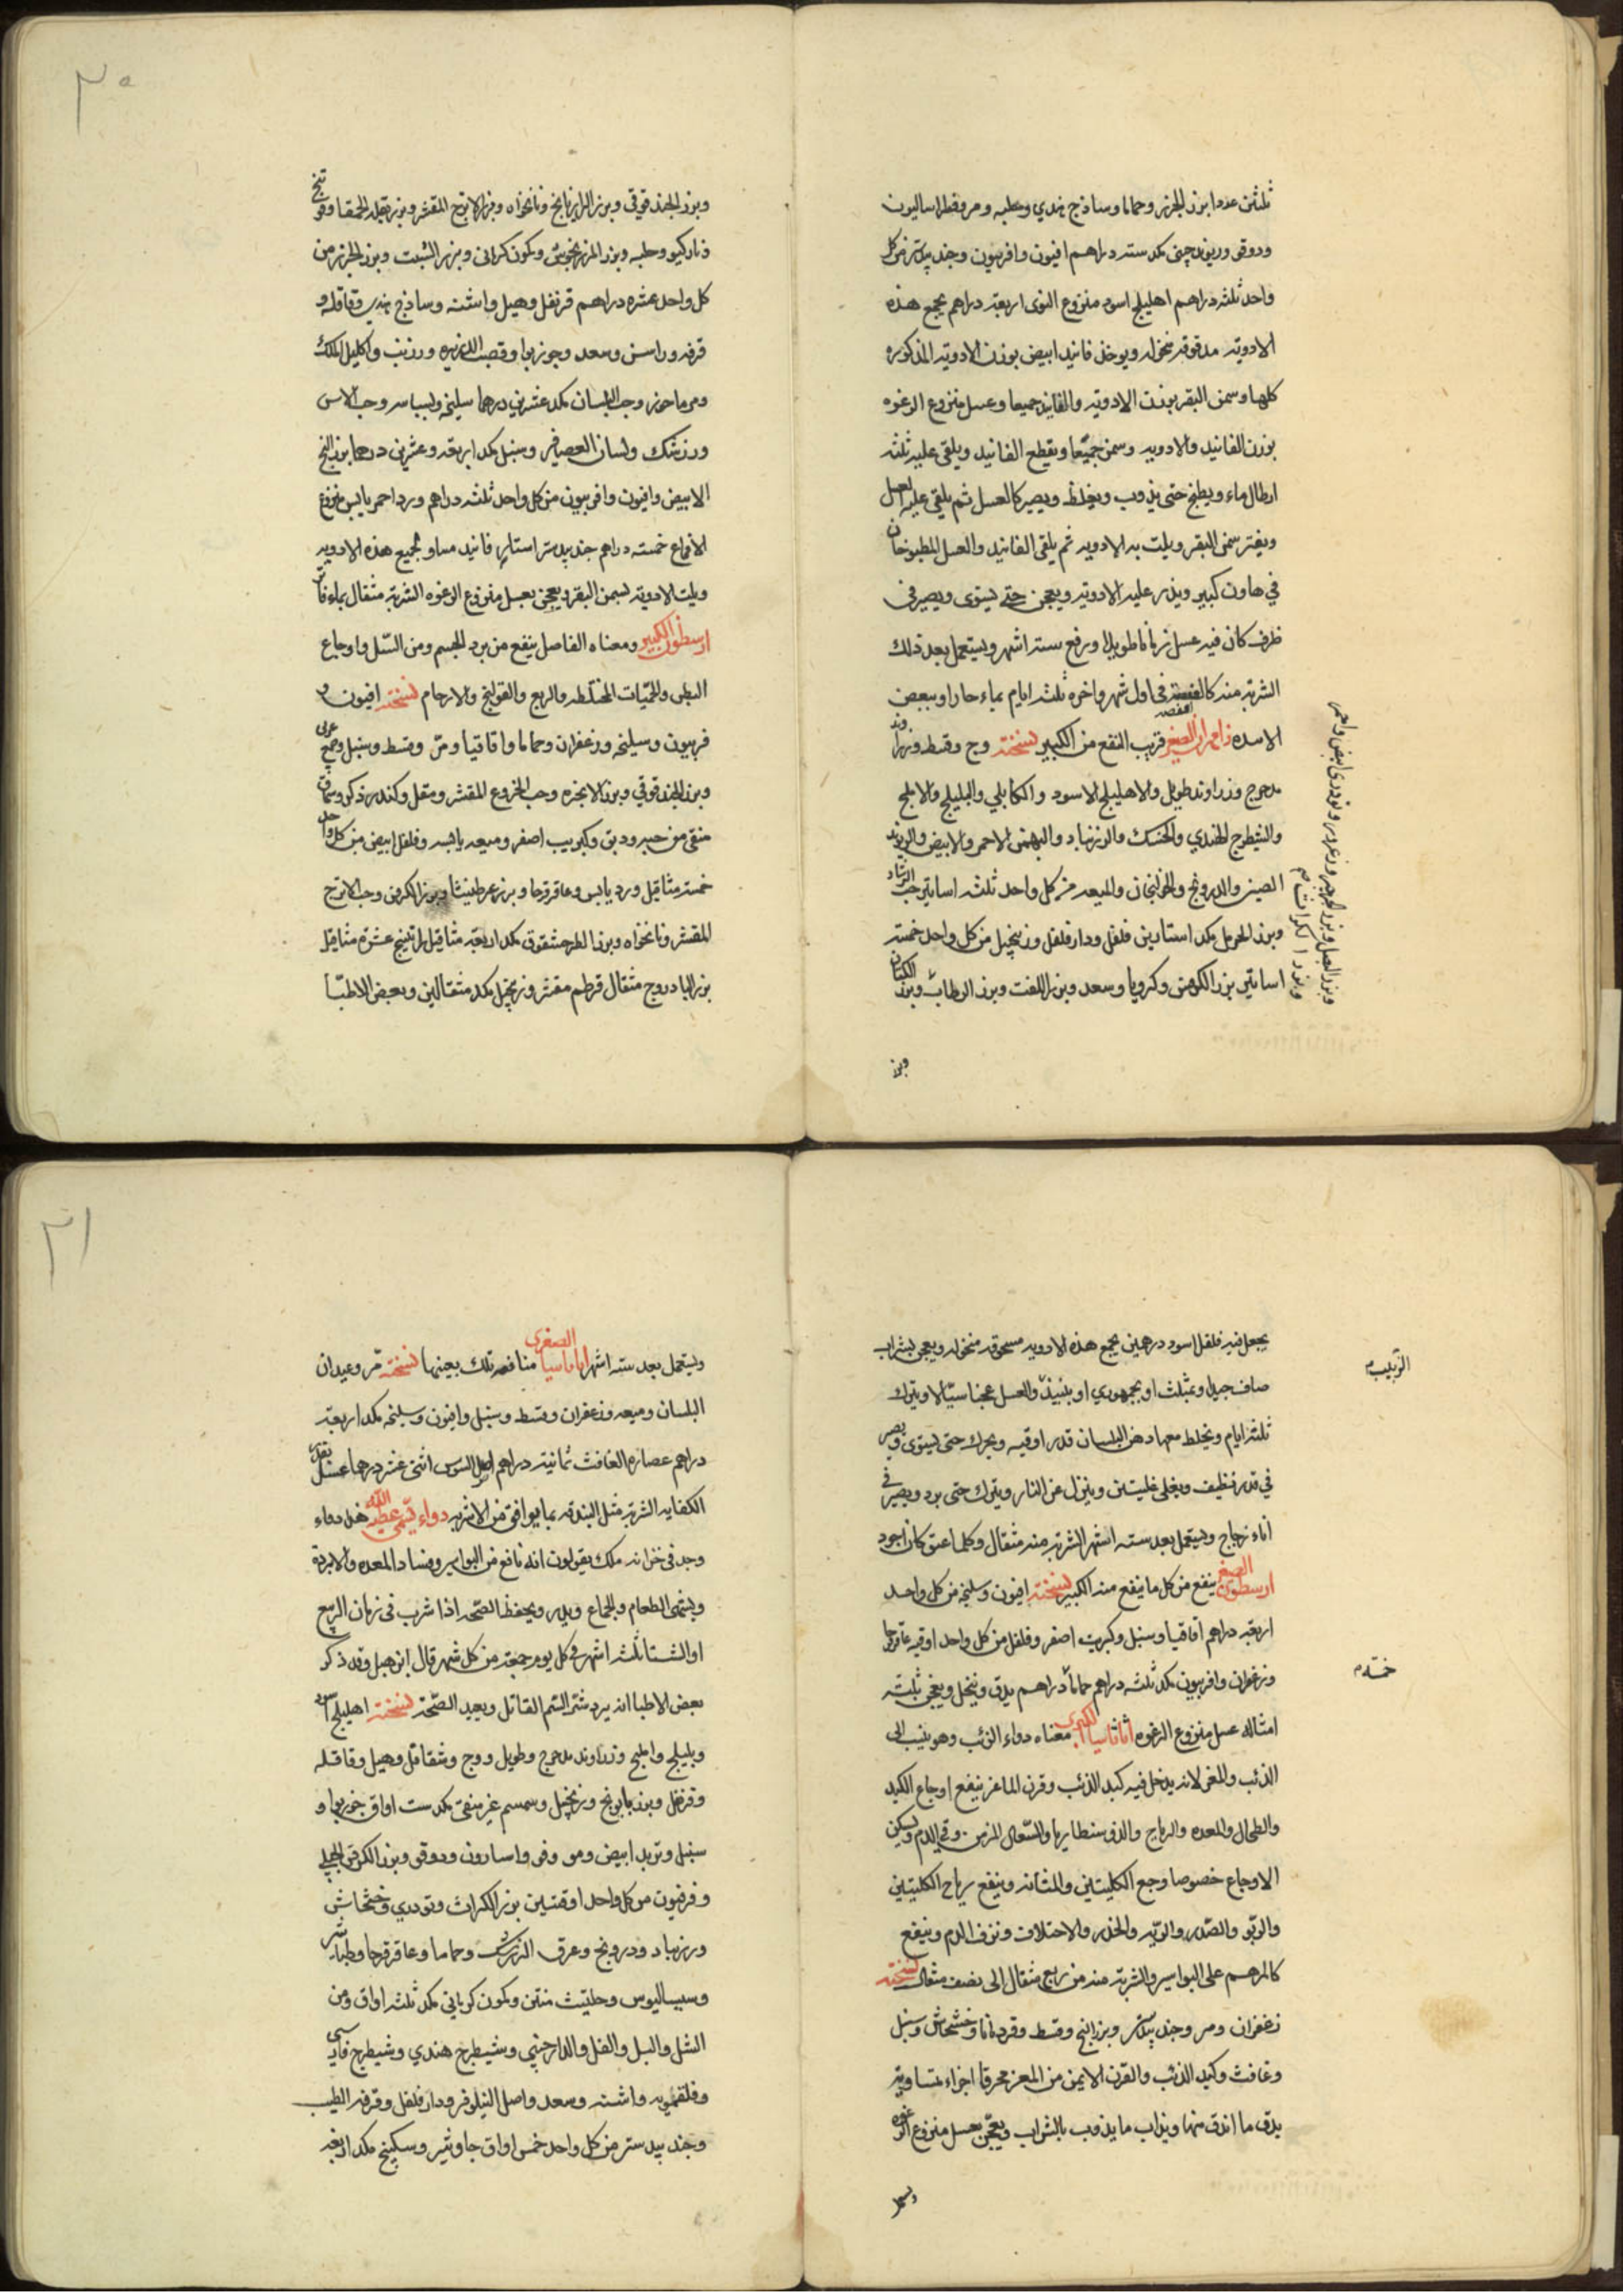 ثلثين عددا بزر الجزر وحماما وساذج هندي وحلبه ومر وفطراساليون
ودوقو وريوند چيني مكد سته دراهم افيون وافربيون وجند بيدستر من كل
واحد ثلثه دراهم اهليلج اسود منزوع النوى اربعة دراهم يجمع هذه
الادويه مدقوقه منخوله ويوخذ فانيد ابيض بوزن الادويه المذكوره
كلها وسمن البقر بوزن الادويه والفانيد جميعا وعسل منزوع الرغوه
بوزن الفانيد والادويه وسمن جميعا ويقطع الفانيد ويلقى عليه ثلثه
ارطال ماء ويطبخ حتى يذوب ويغلظ ويصير كالعسل ثم يلقى عليه العسل
ويفتر سمن البقر ويلت به الادويه ثم يلقى الفانيد والعسل المطبوخان
في هاون كبير ويذر عليه الادويه ويعجن حتى يستوى ويصير في
ظرف كان فيه عسل زمانا طويلا ويرفع سته اشهر ويستعمل بعد ذلك
الشربة منه كالعفصه في اول شهر واخره ثلثه ايام بماء حار او ببعض
الاشربه زامهران الصغير قريب النفع من الكبير نسخته وج وقسط وزراوند
مدحرج وزراوند طويل والاهليلج الاسود والكابلي والبليلج والاملج
والشيطرج الهندي والخسك والزرنباد والبهمن الاحمر والابيض والريوند
الصيني والدرونج والخولنجان والميعه من كل واحد ثلثه اساتير حب الرشاد
وبزر الحرمل مكد استارين فلفل ودار فلفل وزنجبيل من كل واحد خمسه
اساتير بزر الكرفس وكرويا وسعد وبزر اللفت وبزر الرطاب وبزر الكتان
وبزر البصل وبزر الجرجير وتودرى ابيض واحمر
وبزر الكراث
وبزر
وبزر الحندقوقى وبزر الرازيانج ونانخواه وبزر الاترج المقشر وبزر بقله الحمقا وفوتنج
ونارکیو وحلبه وبزر المرزنجوش وكمون كرمانى وبزر الشبت وبزر الجزر من
كل واحد عشره دراهم قرنفل وهيل واشنه وساذج هندي وقاقله و
قرفه وراسن وسعد وجوزبوا وقصب الذريره وزرنب واكليل الملك
ومرماحوز وحب البلسان مكد عشرين درهما سليخه وبسباسه وحب الاس
وزرشك ولسان العصافير وسنبل مكد اربعه وعشرين درهما بزر البنج
الابيض وافيون وافربيون من كل واحد ثلثه دراهم ورد احمر يابس منزوع
الاقماع خمسه دراهم جندبيدستر استار فانيد مساو لجميع هذه الادويه
ويلت الادويه بسمن البقر ويعجن بعسل منزوع الرغوه الشربة مثقال بماء فاتر
ارسطون الكبير ومعناه الفاصل ينفع من برد الجسم ومن السّل واوجاع
البطن والحمّيات المختلطه والربع والقولنج والارحام نسخته افيون و
فربيون وسليخه وزعفران وحماما واقاقيا ومرّ وقسط وسنبل وصمغ عربى
وبزر الحندقوقي وبزر الانجره وحب الخروع المقشر ومقل وكندر ذكر وسماق
منقى من حبه ودبق وكبريت اصفر وميعه يابسه وفلفل ابيض من كل واحد
خمسة مثاقيل ورد يابس وعاقرقرحا وبزر عرطنيثا وبزر الكرفس وحب الاترج
المقشر ونانخواه وبزر الطرحشقوق مكد اربعة مثاقيل راتينج عشرة مثاقيل
بزر البادروج مثقال قرطم مقشر وزنجبيل مكد مثقالين وبعض الاطبّا
يجعل فيه فلفل اسود درهمين يجمع هذه الادويه مسحوقه منخوله ويعجن بشراب
صاف جيد او بمثلث او بجمهوري او بنبيذ والعسل عجنا سيّالا ويترك
الزبيب م
ثلثة ايام ويخلط معها دهن البلسان قدر اوقيه ويحرك حتى يستوى ويصير
في قدر نظيف ويغلى غليتين وينزل عن النار ويترك حتى يبرد ويصير في
اناء زجاج ويستعمل بعد سته اشهر الشربة منه مثقال وكلما عتق كان اجود
ارسطون الصغير ينفع من كل ما ينفع منه الكبير نسخته افيون وسليخه من كل واحد
اربعة دراهم اقاقيا وسنبل وكبريت اصفر وفلفل من كل واحد اوقيه عاقرقرحا
وزعفران وافربيون مكد ثلثه دراهم حماما دراهم يدق وينخل ويعجن بثلثة
خمسة م
امثاله عسل منزوع الرغوه اثاناسيا الكبرى معناه دواء الذئب وهو ينسب الى
الذئب والمعز لانه يدخل فيه كبد الذئب وقرن الماعز ينفع اوجاع الكبد
والطحال والمعده والرياح والذوسنطاريا والسّعال المزمن وقي الدم ويسكن
الاوجاع خصوصا وجع الكليتين والمثانه وينفع رياح الكليتين
والربو والصّدر والريه والخدر والاختلاف ونزف الدم وينفع
كالمرهم على البواسير والشربة منه من ربع مثقال الى نصف مثقال نسخته
زعفران ومر وجند بيدستر وبزر البنج وقسط وقردمانا وخشخاش وسنبل
وغافث وكبد الذئب والقرن الايمن من المعز محرقا اجزاء متساويه
يدق ما اندق منها ويذاب ما يذوب بالشراب ويعجن بعسل منزوع الرغوه
ويستعمل
ويستعمل بعد سته اشهر اثاناسيا الصغرى منافعه تلك بعينها نسخته مرّ وعيدان
البلسان وميعه وزعفران وقسط وسنبل وافيون وسليخه مكد اربعة
دراهم عصارة الغافث ثمانية دراهم اصل السوس اثنى عشر درهما عسل بقدر
الكفايه الشربة مثل البندقه بما يوافق من الاشربه دواء يسمّى عطية الله هذا دواء
وجد في خزانه ملك يقولون انه نافع من البواسير وفساد المعده والابردة
ويشهى الطعام والجماع ويدر ويحفظ الصّحه اذا شرب فى زمان الربيع
او الشتا ثلثه اشهر في كل يوم جمعة من كل شهر قال ابن هبل وقد ذكر
بعض الاطبا انه يرد شر السّم القاتل ويعيد الصّحة نسخته اهليلج اسود
وبليلج واملج وزراوند مدحرج وطويل ووج وشقاقل وهيل وقاقله
وقرنفل وبزر بابونج وزنجبيل وسمسم غير منقى مكد ست اواق جوزبوا و
سنبل وتربد ابيض ومو وفو واسارون ودوقو وبزر الكرفس الجبلي
وفربيون من كل واحد اوقيتين بزر الكراث وتودري وخشخاش
وزرنباد ودرونج وعرق الزرشك وحماما وعاقرقرحا وطباشير
وسيساليوس وحلتيت منتن وكمون كرماني مكد ثلثه اواق ومن
الشل والبل والفل والدارچيني وشيطرج هندي وشيطرج فارسي
وفلفلمويه واشنه وسعد واصل النيلوفر ودار فلفل وقرفه الطيب
وجند بيدستر من كل واحد خمس اواق جاوشير وسكبينج مكد اربعة
٣٠
٣١